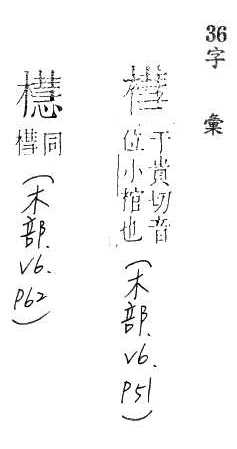 36字 彙
槥
于貴切音
位小棺也
(木部. v6. p51)
櫘
同
槥
(木部. v6. p62)